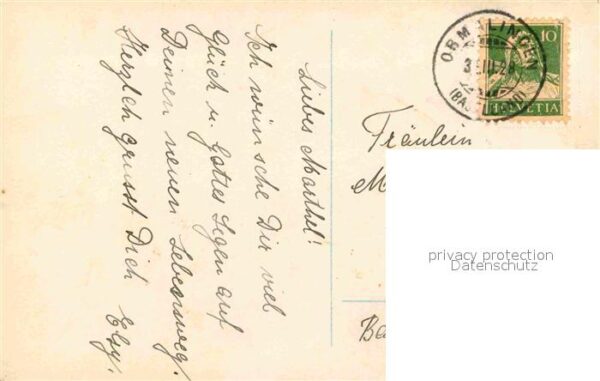 Liebes Marthel!
Ich wünsche Dir viel
Glück u. Gottes Segen auf
Deinen neuen Lebensweg.
Herzlich grüsst Dich Elsy.
Fräulein
M
Ba
ORMALINGEN
10
HELVETIA
privacy protection
Datenschutz